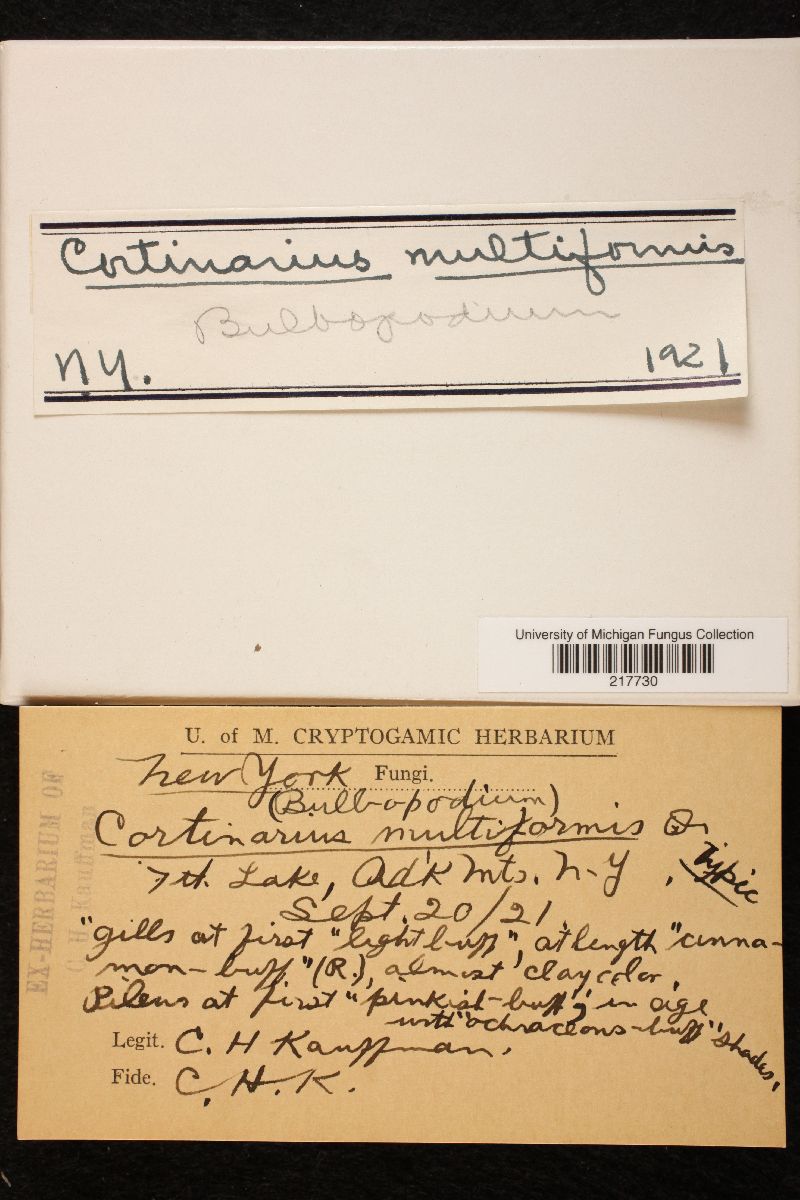 Cortinarius multiformis
Bulbopodium
N.Y. 1921
University of Michigan Fungus Collection
217730
U. of M. CRYPTOGAMIC HERBARIUM
New York Fungi.
(Bulbopodium)
Cortinarius multiformis
7th. Lake, Adk Mts. N-Y.
Typic
Sept. 20/21.
"gills at first "light buff", at length "cinna-
mon-buff" (R.), almost clay color.
Pileus at first "pinkish-buff", in age
with "ochraceous-buff" shades.
Legit. C. H Kauffman.
Fide. C. H. K.
EX-HERBARIUM OF
C. H. Kauffman